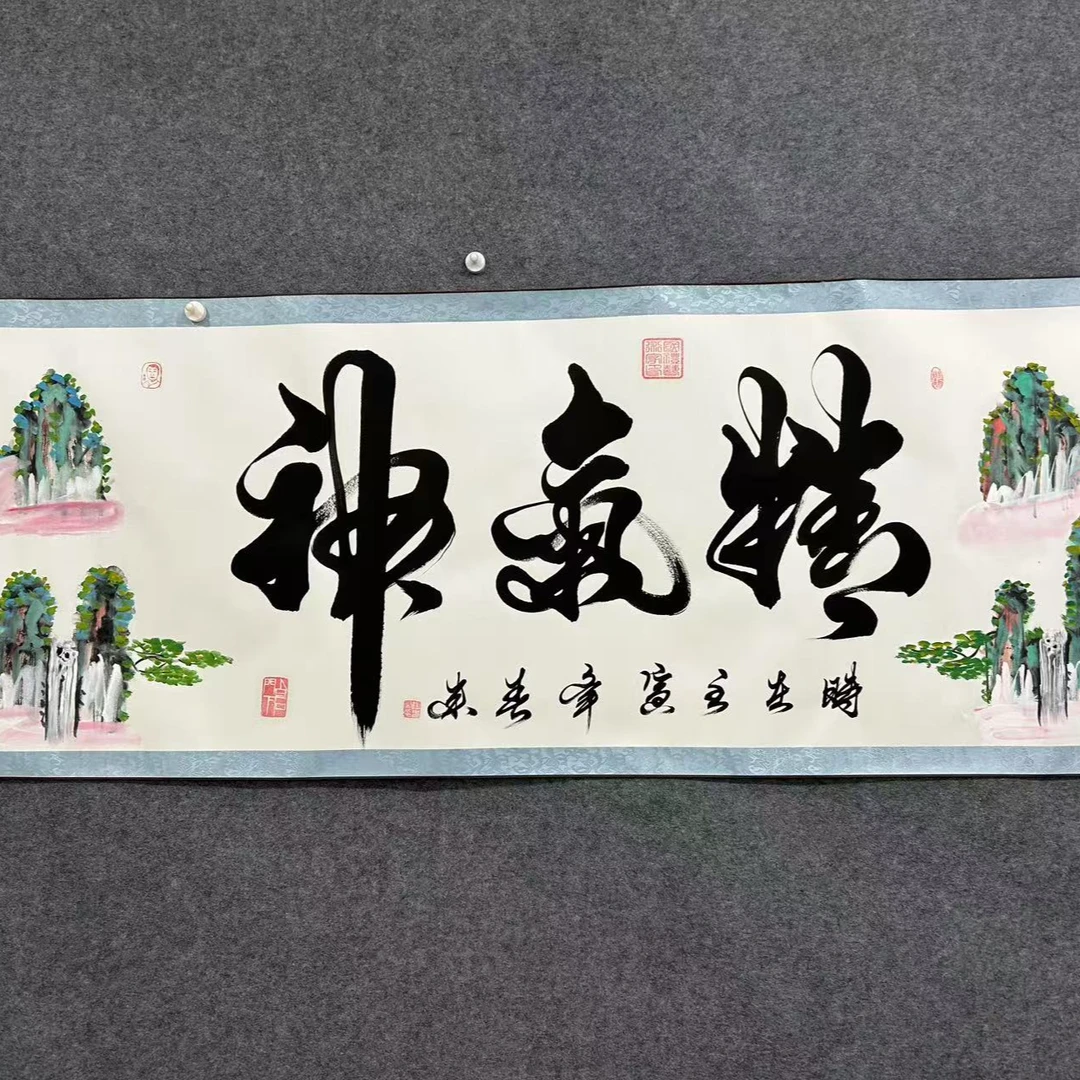 精氣神
時在壬寅年春